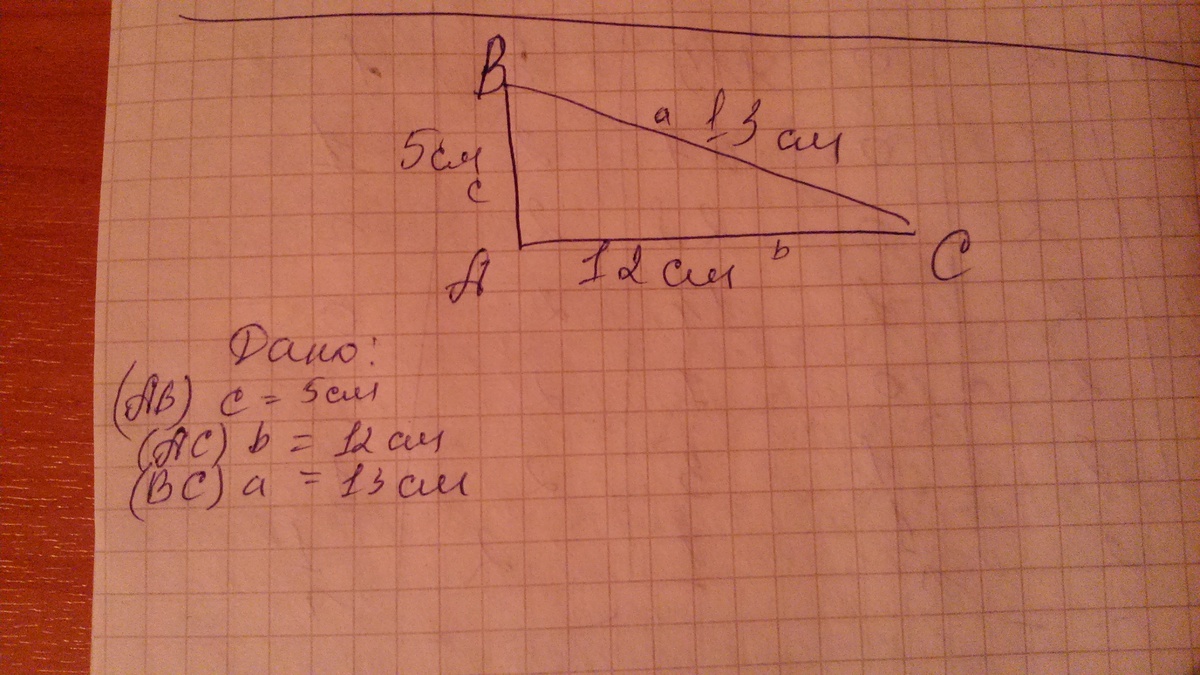 B
a 13 см
5см
c
A
12 см b
C
Дано:
(AB) c = 5см
(AC) b = 12 см
(BC) a = 13 см